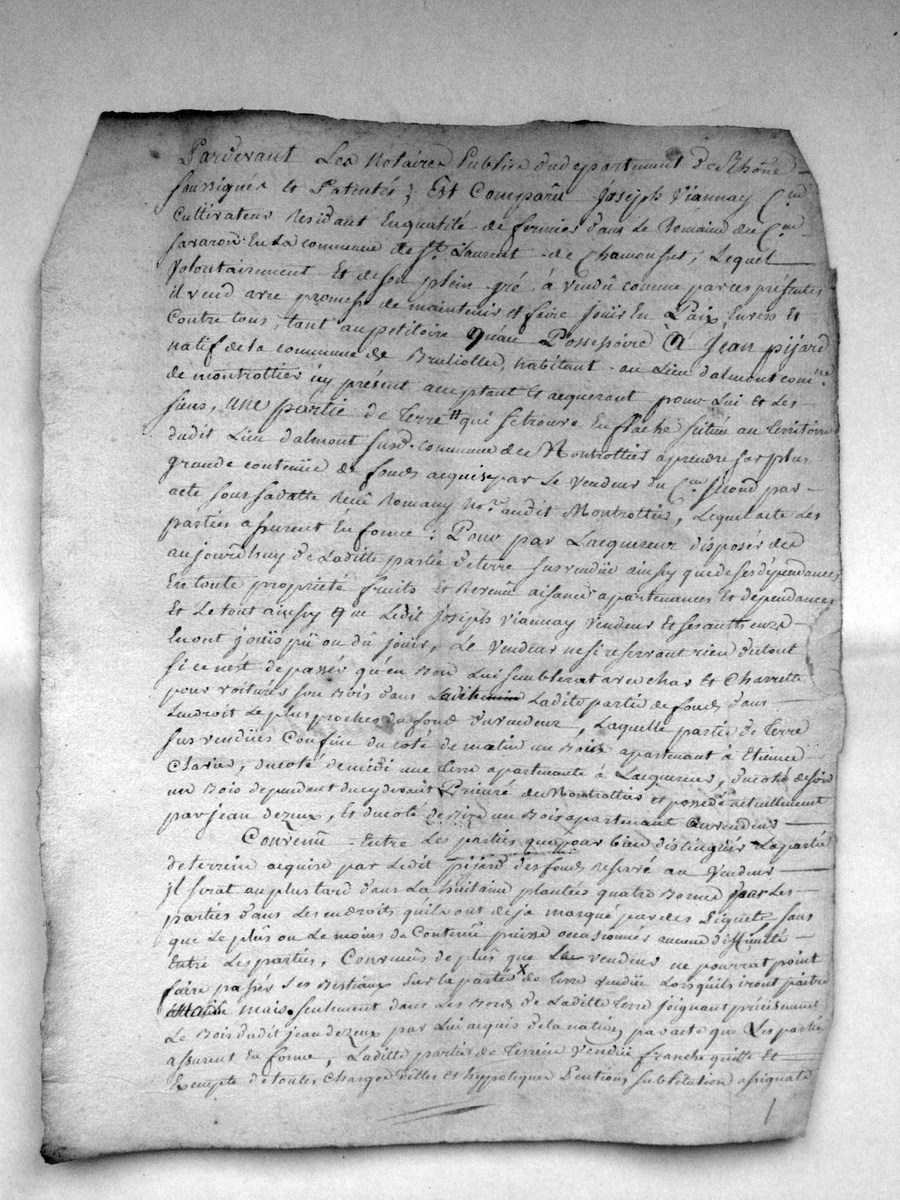 Pardevant Les Notaires Publics du département de Rhône
soussignés et Patentés; Est Comparû Joseph Viannay C.en
Cultivateur Residant En qualité de fermier dans Le Domaine du C.en
savaron En La commune de S.t Laurent de Chamousset, Lequel
volontairement Et de son plein gré, à vendû comme par ces présentes
il vend avec promesse de maintenir et faire jouïr En Paix, Envers Et
Contre tous, tant au petitoire qu'au Possessoire à Jean pijard
natif de la commune de Brullioles, habitant au Lieu d'almont com.ne
de montrottier icy présent acceptant et acquerant pour Lui et Les
siens, une partie de Terre # qui se trouve En flache scituée au Territoire
dudit Lieu d'almont susd. commune de Montrottier à prendre sur plus
grande contenüe de fonds acquise par Le vendeur du C.en second par
acte sous sa datte Reçû Romany No.re audit Montrottier, Lequel acte Les
parties assurent En forme: Pour par L'acquereur disposer dez
aujourd'huy de Laditte partie de terre sus vendüe ainsy que de ses dépendances
En toute propriété fruits Et Revenû aisances apartenances Et dépendances
Et Le tout ainsy que Ledit Joseph Viannay vendeur Et ses autheurs
En ont jouïs pü ou dû jouir, Le vendeur ne se reservant rien du tout
si ce n'est de passer qu'en Bon Lui semblerat avec char Et Charrette
pour voiturer son Bois dans Laditte partie de fonds dans
Lendroit Le plus proches du fond du vendeur, Laquelle partie de Terre
sus vendües Confine du coté de matin un Bois apartenant à Etienne
Clavier, du coté de midi une Terre apartenante à L'acquereur, du coté de soir
un Bois dependant du cy devant Prieuré de Montrottier et possedé actuellement
par jean dezeux, Et du coté de Bize un Bois apartenant au vendeur
Convenû Entre Les parties que pour bien distinguer La partie
de terrein acquise par Ledit pijard des fonds Reservé au vendeur
il serat au plus tard dans La huitaine plantées quatre Bornes par Les
parties dans Les endroits qu'ils ont deja marqué par des piquets sans
que Le plus ou Le moins de Contenû puisse occasionner aucune difficulté
Entre Les parties, Convenües de plus que Le vendeur ne pourrat point
faire passer ses Bestiaux sur La partie x de Terre vendüe Lorsqu'ils iront paitre
mais seulement dans Les Bords de Laditte Terre joignant précisement
Le Bois dudit jean dezeux par Lui acquis de la nation, par acte que Les parties
assurent En forme, Laditte partie de Terrein vendüe franche quitte Et
Exempte de toutes Charges dettes et hypoteques Pentions substitution assignats